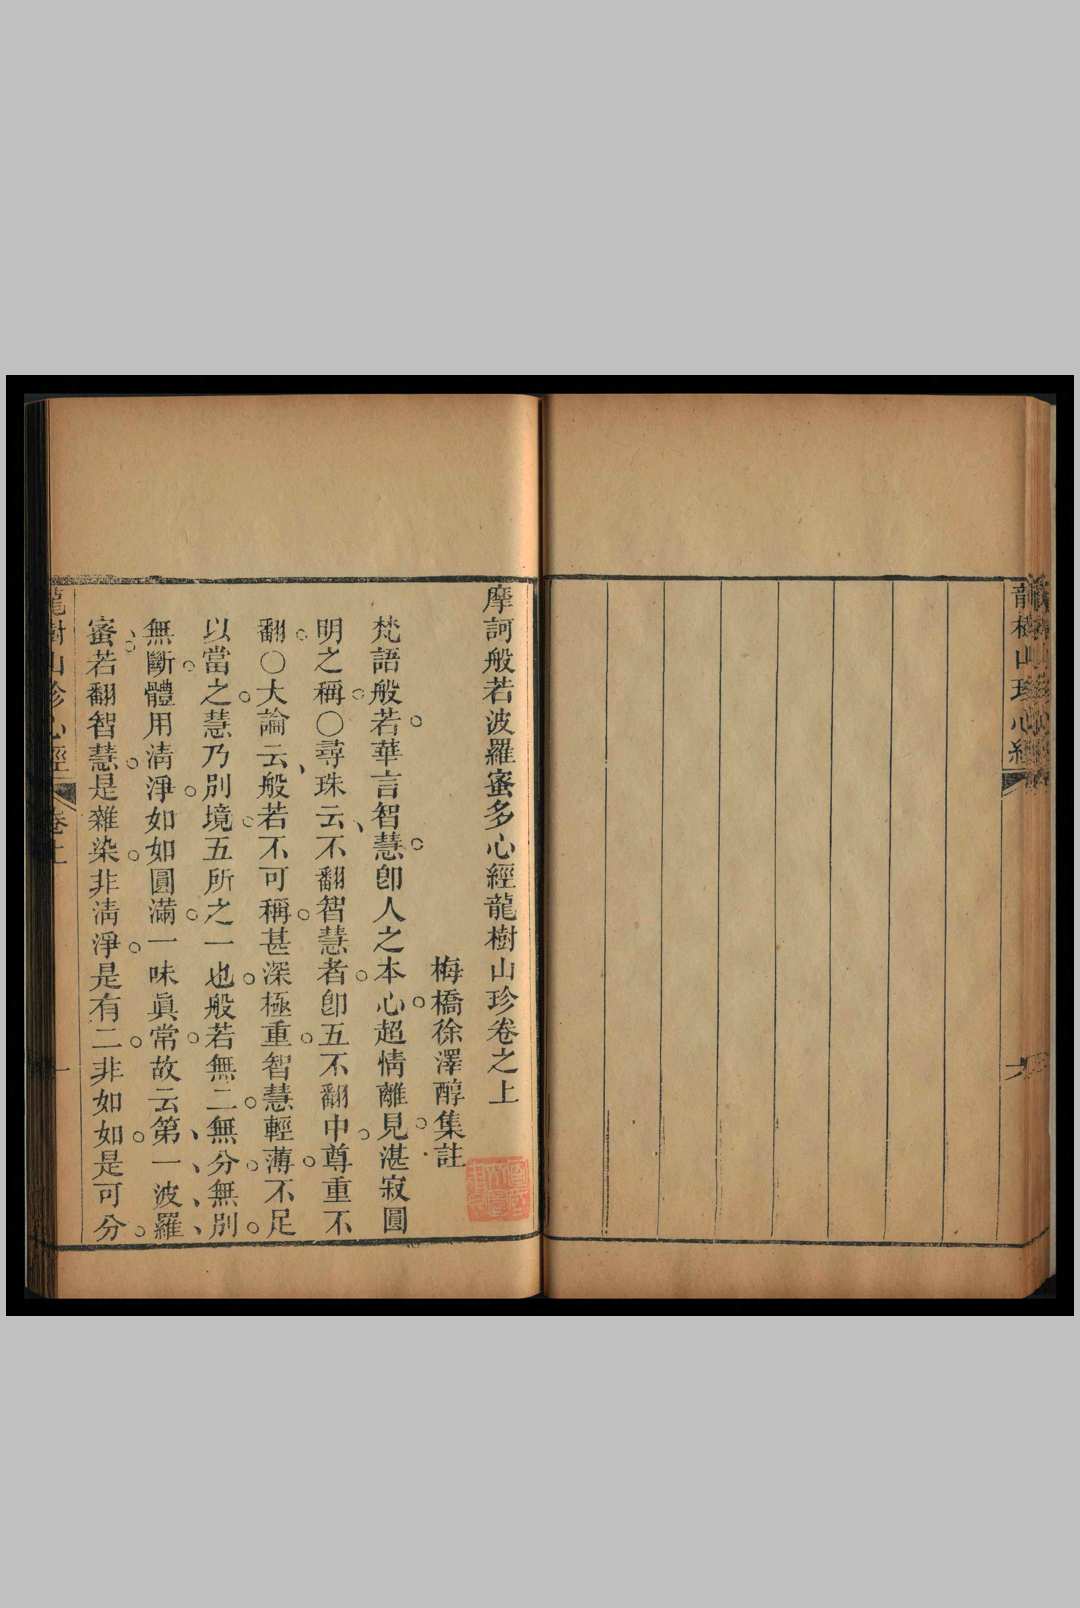 龍樹山珍心經
摩訶般若波羅蜜多心經龍樹山珍卷之上
梅橋徐澤醇集註
梵語般若華言智慧卽人之本心超情離見湛寂圓
明之稱〇尋珠云不翻智慧者卽五不翻中尊重不
翻〇大論云般若不可稱甚深極重智慧輕薄不足
以當之慧乃別境五所之一也般若無二無分無別
無斷體用淸淨如如圓滿一味眞常故云第一波羅
蜜若翻智慧是雜染非淸淨是有二非如如是可分
龍樹山珍心經 卷上 一